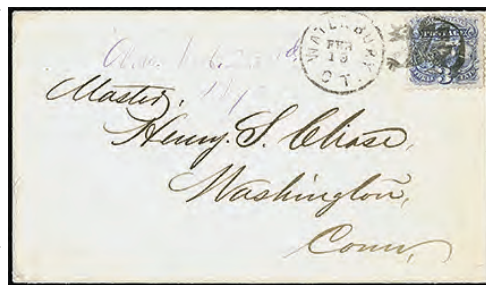 WATERBURY
FEB
18
CT.
POSTAGE
Master,
Henry. S. Chase,
Washington,
Conn,